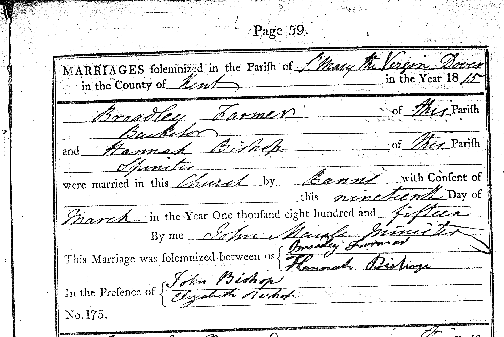 Page 59.
MARRIAGES solemnized in the Parish of St Mary the Virgin Dover
in the County of Kent in the Year 1815
Broadley Farmer of this Parish
Bachelor
and Hannah Bishop of this Parish
Spinster
were married in this Church by Banns with Consent of
this nineteenth Day of
March in the Year One thousand eight hundred and fifteen
By me John Maule Minister
This Marriage was solemnized between us { Broadly Farmer
Hannah Bishop
In the Presence of { John Bishop
Elizabeth Bishop
No. 175.